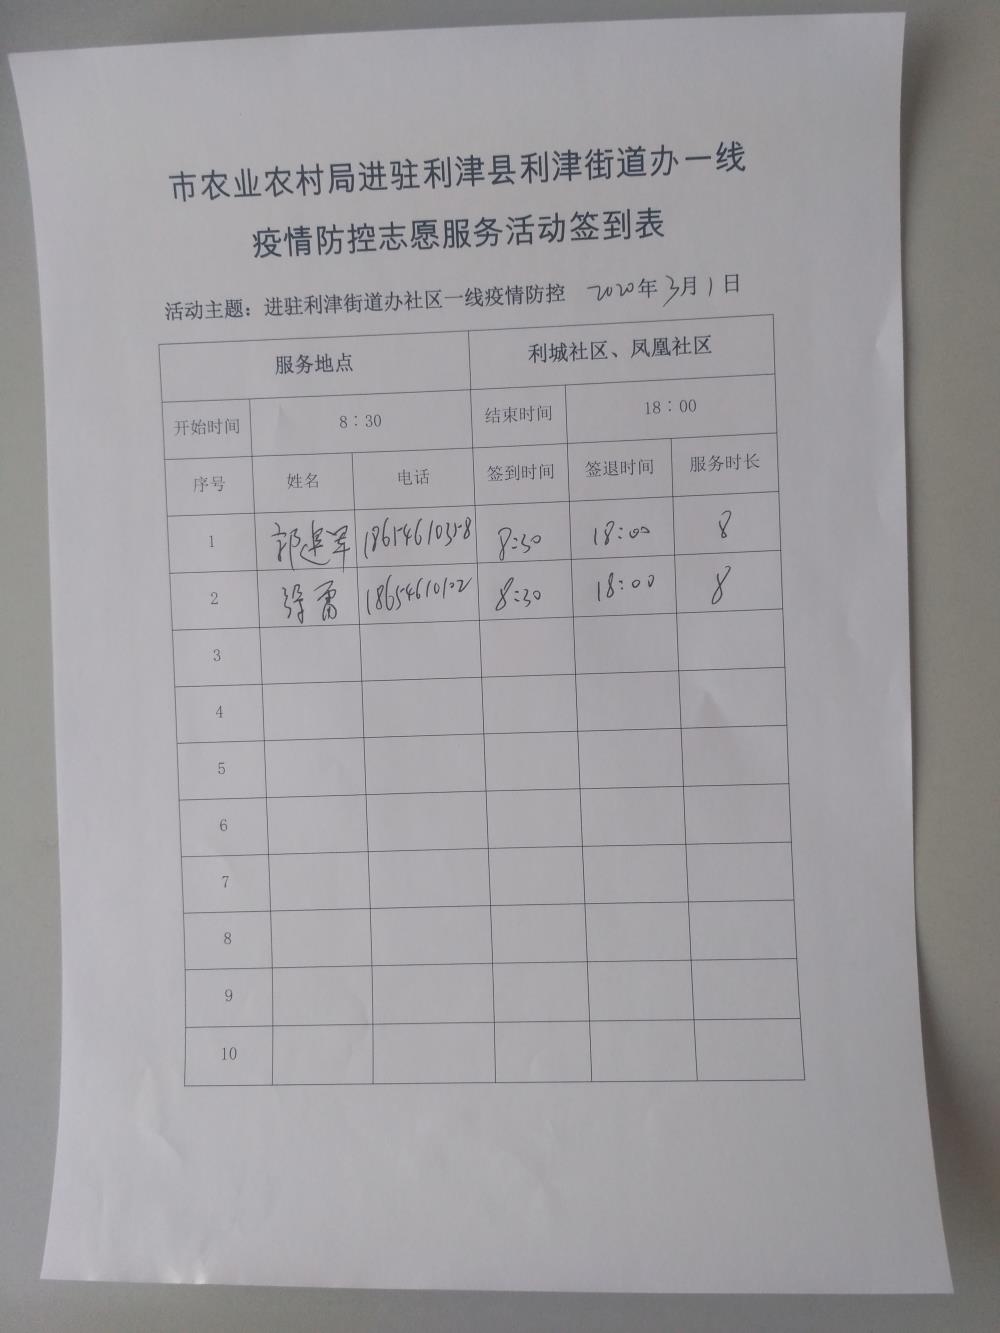 市农业农村局进驻利津县利津街道办一线
疫情防控志愿服务活动签到表
活动主题：进驻利津街道办社区一线疫情防控 2020年3月1日
服务地点 利城社区、凤凰社区
开始时间 8：30 结束时间 18：00
序号 姓名 电话 签到时间 签退时间 服务时长
1 郭建军 18654610358 8:30 18:00 8
2 徐雷 18654610122 8:30 18:00 8
3
4
5
6
7
8
9
10